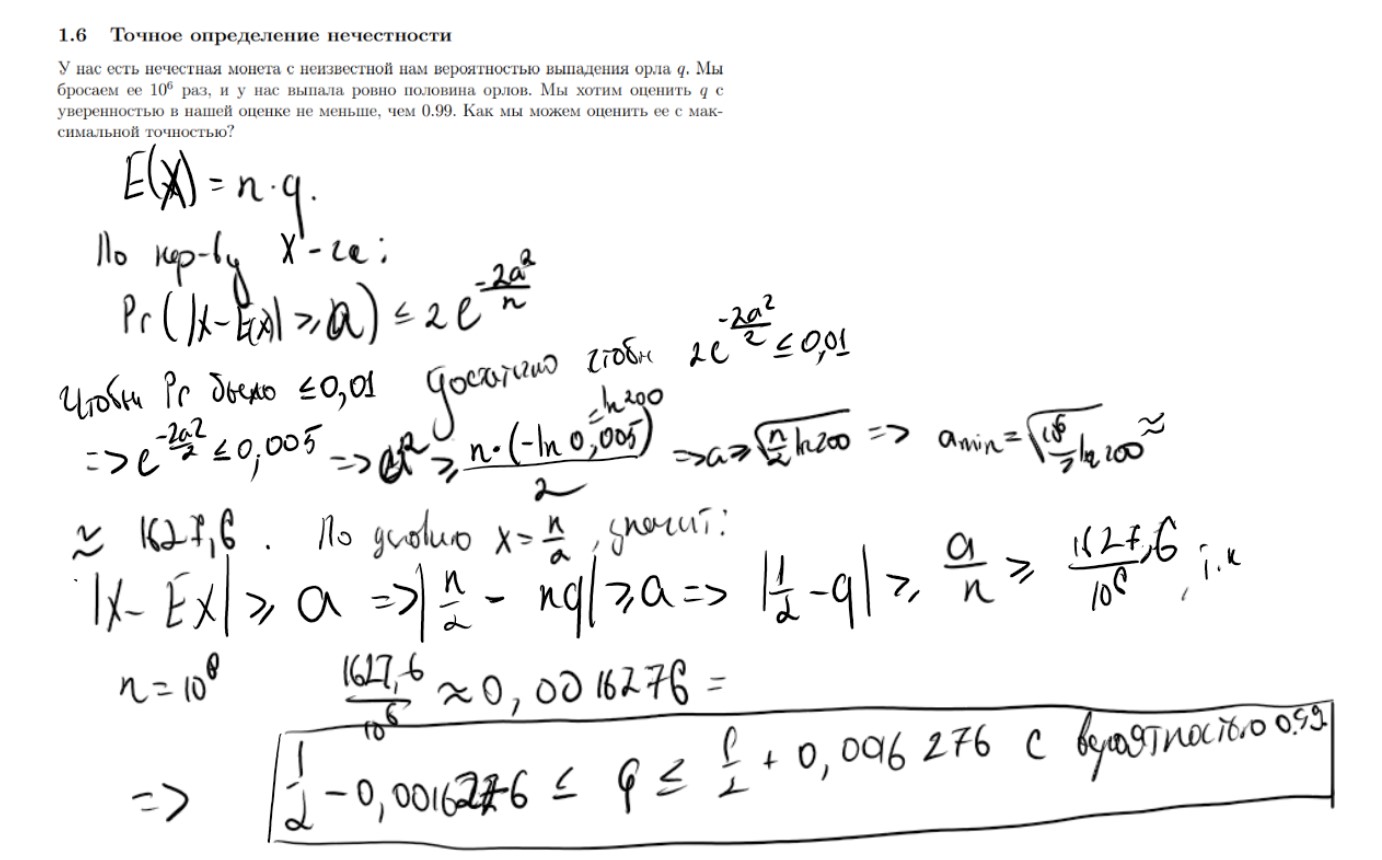 1.6 Точное определение нечестности
У нас есть нечестная монета с неизвестной нам вероятностью выпадения орла q. Мы
бросаем ее 10⁶ раз, и у нас выпала ровно половина орлов. Мы хотим оценить q с
уверенностью в нашей оценке не меньше, чем 0.99. Как мы можем оценить ее с мак-
симальной точностью?
E(X) = n·q.
По нер-ву Х-га:
Pr(|X-E(x)| ⩾ a) ≤ 2e^{-2a²/n}
Чтобы Pr было ≤0,01 достаточно чтобы 2e^{-2a²/2} ≤ 0,01
=> e^{-2a²/2} ≤ 0,005 => a² ⩾ n·(-ln 0,005)/2 =ln200 => a ⩾ √(n/2 ln200) => a min = √(10⁶/2 ln 200) ≈
≈ 1627,6. По условию x = n/2, значит:
|X - EX| ⩾ a => |n/2 - nq| ⩾ a => |1/2 - q| ⩾ a/n ⩾ 1627,6/10⁶, т.к
n = 10⁶ 1627,6/10⁶ ≈ 0,0016276 =
=> 1/2 - 0,0016276 ≤ q ≤ 1/2 + 0,0016276 с вероятностью 0.99